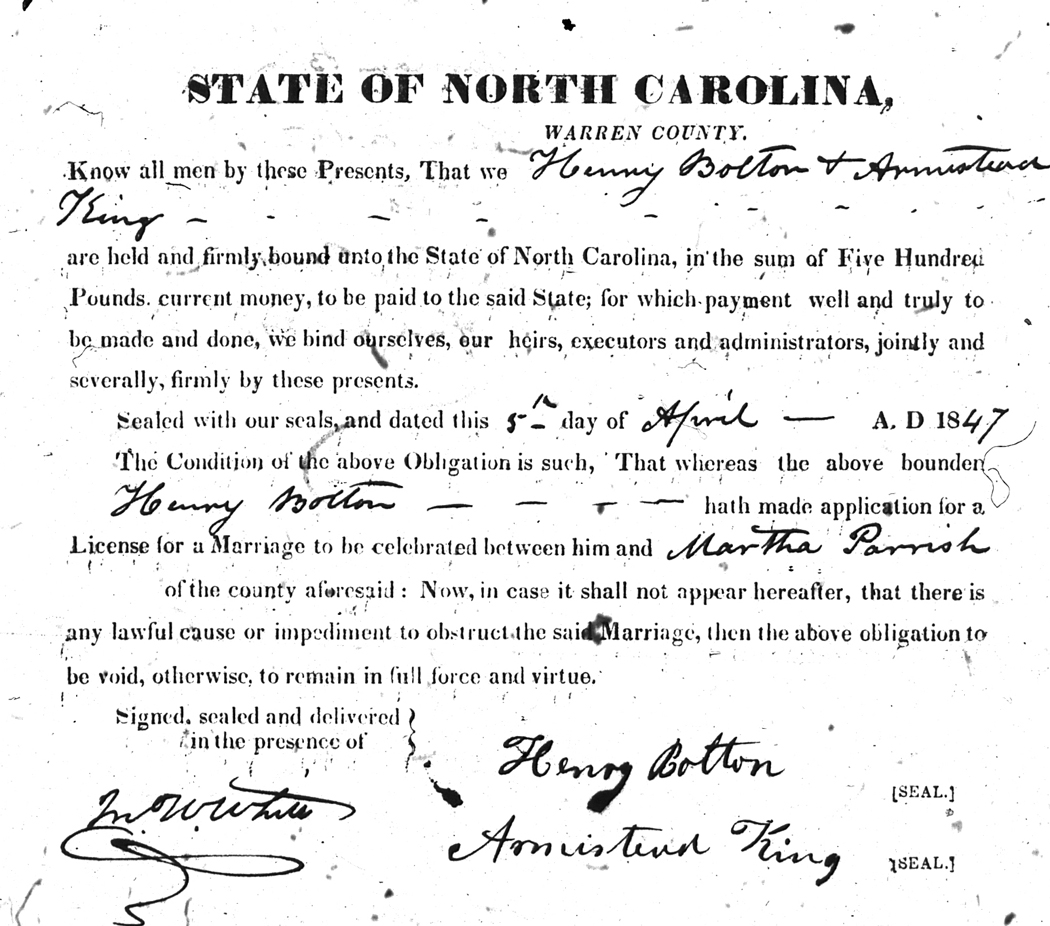 STATE OF NORTH CAROLINA,
WARREN COUNTY.
Know all men by these Presents, That we Henry Bolton & Armistead
King - - - - - - - -
are held and firmly bound unto the State of North Carolina, in the sum of Five Hundred
Pounds. current money, to be paid to the said State; for which payment well and truly to
be made and done, we bind ourselves, our heirs, executors and administrators, jointly and
severally, firmly by these presents.
Sealed with our seals, and dated this 5th day of April — A. D 1847
The Condition of the above Obligation is such, That whereas the above bounden
Henry Bolton — — — — hath made application for a
License for a Marriage to be celebrated between him and Martha Parrish
of the county aforesaid : Now, in case it shall not appear hereafter, that there is
any lawful cause or impediment to obstruct the said Marriage, then the above obligation to
be void, otherwise, to remain in full force and virtue.
Signed, sealed and delivered
in the presence of
Henry Bolton [SEAL.]
Jno. W. White
Armistead King [SEAL.]